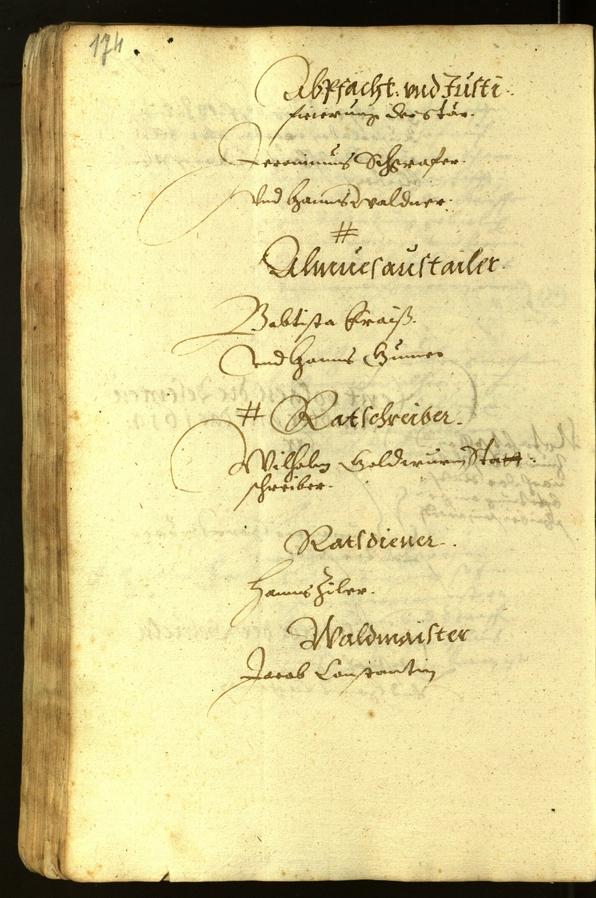 174
Abpfacht. vnd Justi
ficierung der Stär.
Jeronimus Schrafer.
Vnd Hanns Waldner.
#
Almuesaustailer.
Babtista Kraiß.
Vnd Hanns
# Ratschreiber.
Wilhelm Goldwurm Statt
schreiber.
Ratsdiener.
Hanns Ziler.
Waldmaister
Jacob Constantin